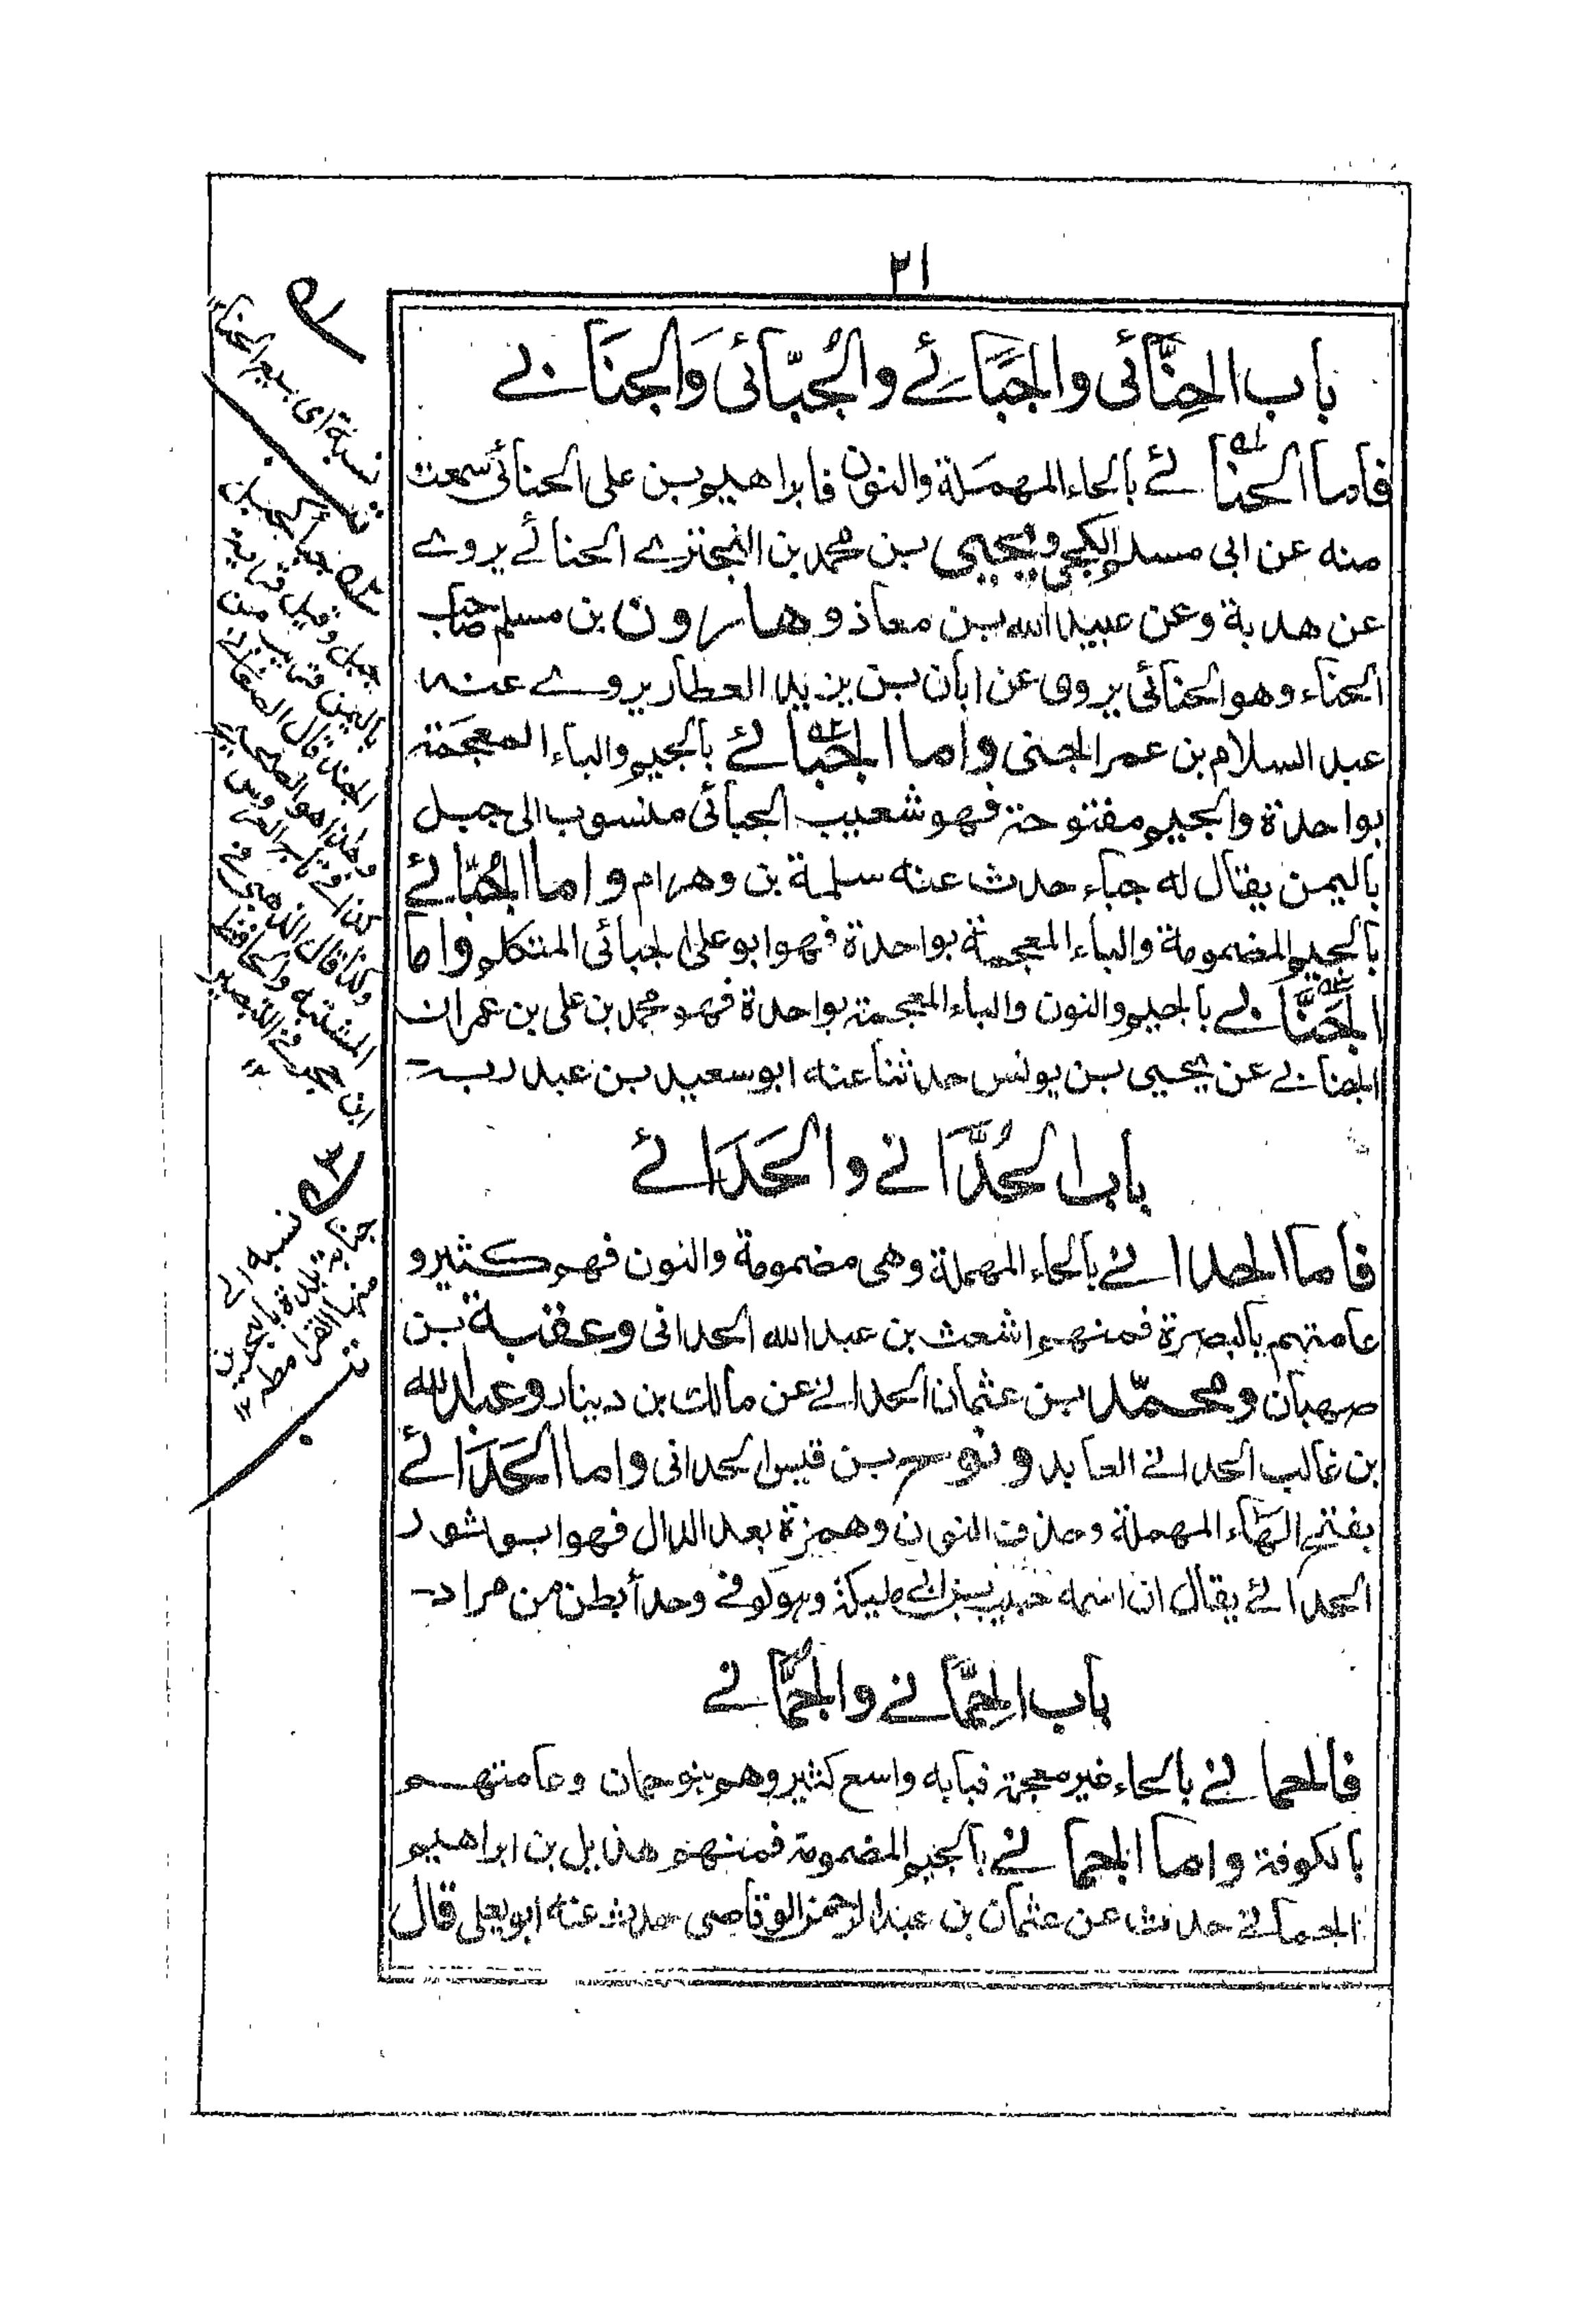 ٢١
باب الحِنَّائى والجَبَّائے والجُبّائى وَالجنَابے
فاما الحنائے بالحاء المهمَلة والنون فابراهيم بن على الحنائى سمعت
منه عن ابى مسلم الكجى ويحيى بن محمد بن البختري الحنائے يروے
عن هدبة وعن عبيد الله بن معاذ وهارون بن مسلم صاحب
الحناء وهو الحنائى يروى عن ابان بن يزيد العطار يروے عنه
عبد السلام بن عمر الجنى واما الجَبائے بالجيم والباء المعجَمة
بواحدة والجيم مفتوحة فهو شعيب الجبائى منسوب الى جبل
باليمن يقال له جباء حدث عنه سلمة بن وهرام واما الجُبّائے
بالجيم المضمومة والباء المعجمة بواحدة فهو ابو على الجبائى المتكلم واما
الجَنَّابے بالجيم والنون والباء المعجمة بواحدة فهو محمد بن على بن عمران
الجنابے عن يحيى بن يونس حدثنا عنه ابو سعيد بن عبد ربه
باب الحُدَّانے والحَدَائے
فاما الحدانے بالحاء المهملة وهى مضمومة والنون فهم كثير و
عامتهم بالبصرة فمنهم اشعث بن عبد الله الحدانى وعقبة بن
صهبان ومحمّد بن عثمان الحدانے عن مالك بن دينار وعبد الله
بن غالب الحدانے العابد ونوح بن قيس الحدانى واما الحَدَائے
بفتح الحاء المهملة وحذف النون وهمزة بعد الدال فهو ابو ثور
الحدائے يقال ان اسمه حبيب بن ابى مليكة وهو كوفى وحدأ بطن من مراد
باب الحِمَّانے والجُمَّانے
فالحمانے بالحاء غير معجمة فبابه واسع كثير وهم بنو حمان وعامتهم
بالكوفة واما الجمانے بالجيم المضمومة فمنهم هذيل بن ابراهيم
الجمانے حدث عن عثمان بن عبد الرحمن الوقاصى حدث عنه ابو يعلى قال
نسبة اى بيع الحناء
جبل وقيل قرية
باليمن قريب من
الجند قال
وهذا هو الصحيح
كذا فى تاج العروس
وكذا قال الذهبى فى
المشتبه والحافظ
ابن حجر فے التبصير
١٢
نسبه الے
جنابة بلدة بالبحرين
منها القرامطه ١٢